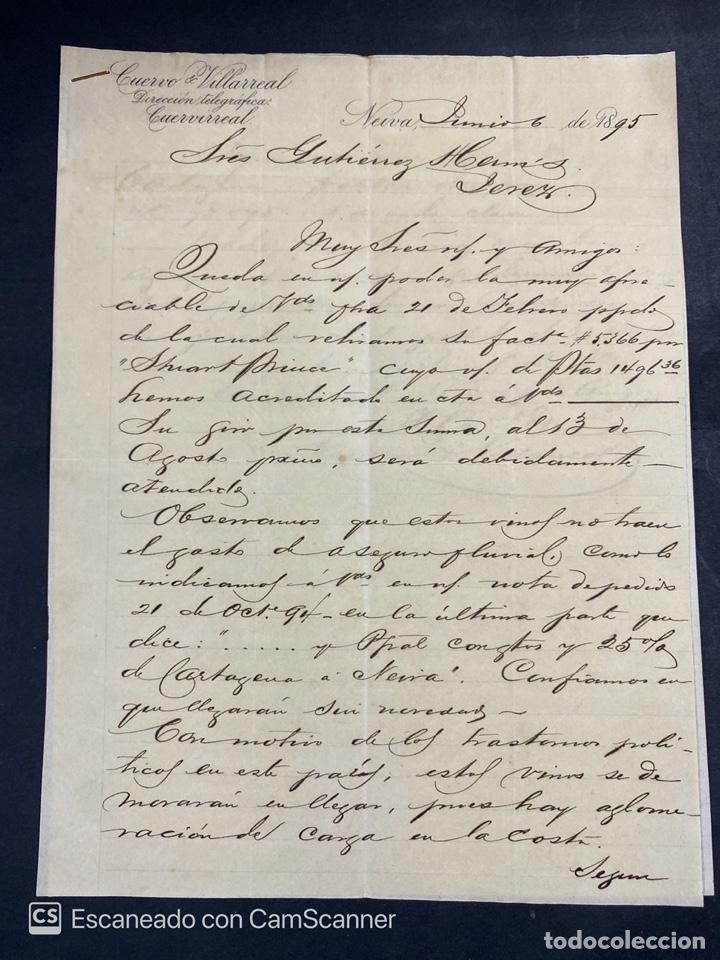 Cuervo & Villarreal
Dirección telegráfica:
Cuervirreal
Neiva, Junio 6 de 1895
Sres Gutiérrez Herms.
Jerez.
Muy Sres ns. y Amigos:
Queda en n/. poder la muy apre-
ciable de Vds fha 21 de Febrero ppdo
de la cual retiramos su facta # 5.366 por
"Stuart Prince" cuyo v/. de Ptas 1496 36
hemos acreditado en cta á Vds
Su giro por esta suma, al 13 de
Agosto pxmo, será debidamente
atendido.
Observamos que estos vinos no traen
el gasto de aseguro fluvial, como lo
indicamos á Vds en n/. nota de pedido
21 de Octe. 94 - en la última parte que
dice: "..... y Ppal con gtos y 25%
de Cartagena a Neiva". Confiamos en
que llegarán sin novedad -
Con motivo de los trastornos polí-
ticos en este país, estos vinos se de
morarán en llegar, pues hay aglome-
ración de carga en la costa.
Segun
CS Escaneado con CamScanner
todocoleccion